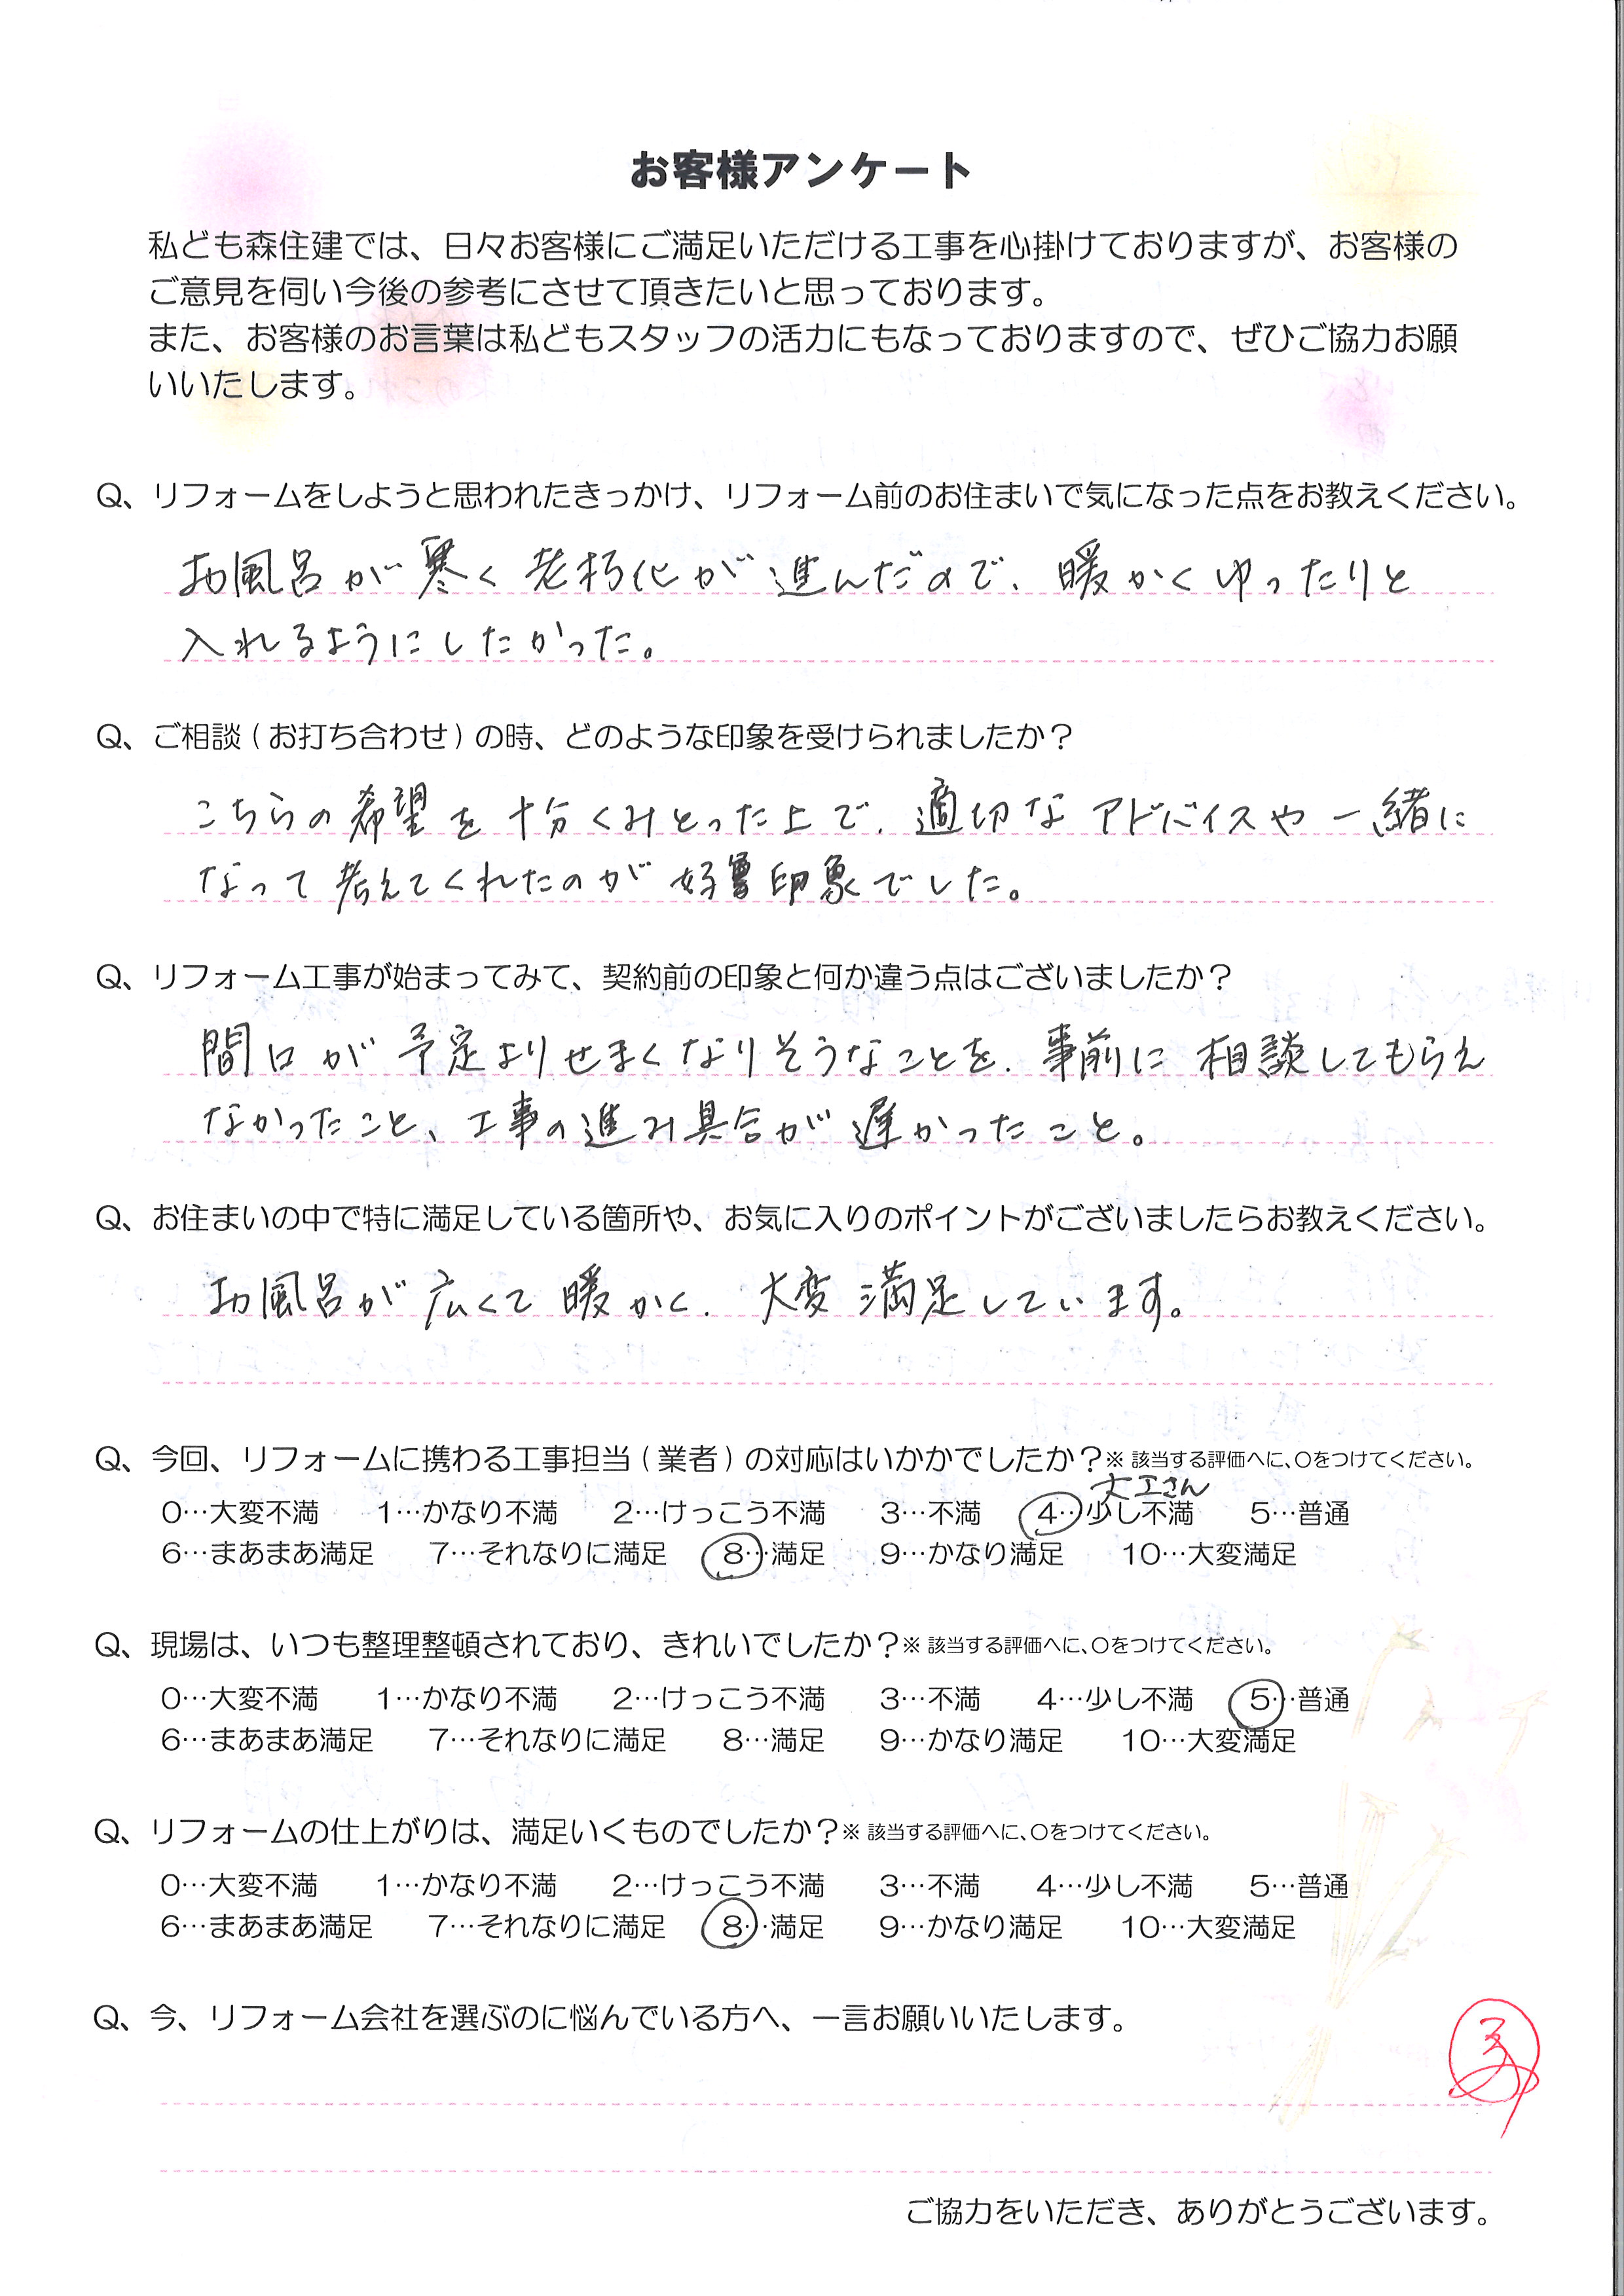 お客様アンケート
私ども森住建では、日々お客様にご満足いただける工事を心掛けておりますが、お客様の
ご意見を伺い今後の参考にさせて頂きたいと思っております。
また、お客様のお言葉は私どもスタッフの活力にもなっておりますので、ぜひご協力お願
いいたします。
Q、リフォームをしようと思われたきっかけ、リフォーム前のお住まいで気になった点をお教えください。
お風呂が寒く老朽化が進んだので、暖かくゆったりと
入れるようにしたかった。
Q、ご相談(お打ち合わせ)の時、どのような印象を受けられましたか？
こちらの希望を十分くみとった上で、適切なアドバイスや一緒に
なって考えてくれたのが好印象でした。
Q、リフォーム工事が始まってみて、契約前の印象と何か違う点はございましたか？
間口が予定よりせまくなりそうなことを、事前に相談してもらえ
なかったこと、工事の進み具合が遅かったこと。
Q、お住まいの中で特に満足している箇所や、お気に入りのポイントがございましたらお教えください。
お風呂が広くて暖かく、大変満足しています。
Q、今回、リフォームに携わる工事担当(業者)の対応はいかかでしたか？※該当する評価へに、○をつけてください。
大工さん
0…大変不満 1…かなり不満 2…けっこう不満 3…不満 4…少し不満 5…普通
6…まあまあ満足 7…それなりに満足 8…満足 9…かなり満足 10…大変満足
Q、現場は、いつも整理整頓されており、きれいでしたか？※該当する評価へに、○をつけてください。
0…大変不満 1…かなり不満 2…けっこう不満 3…不満 4…少し不満 5…普通
6…まあまあ満足 7…それなりに満足 8…満足 9…かなり満足 10…大変満足
Q、リフォームの仕上がりは、満足いくものでしたか？※該当する評価へに、○をつけてください。
0…大変不満 1…かなり不満 2…けっこう不満 3…不満 4…少し不満 5…普通
6…まあまあ満足 7…それなりに満足 8…満足 9…かなり満足 10…大変満足
Q、今、リフォーム会社を選ぶのに悩んでいる方へ、一言お願いいたします。
ご協力をいただき、ありがとうございます。